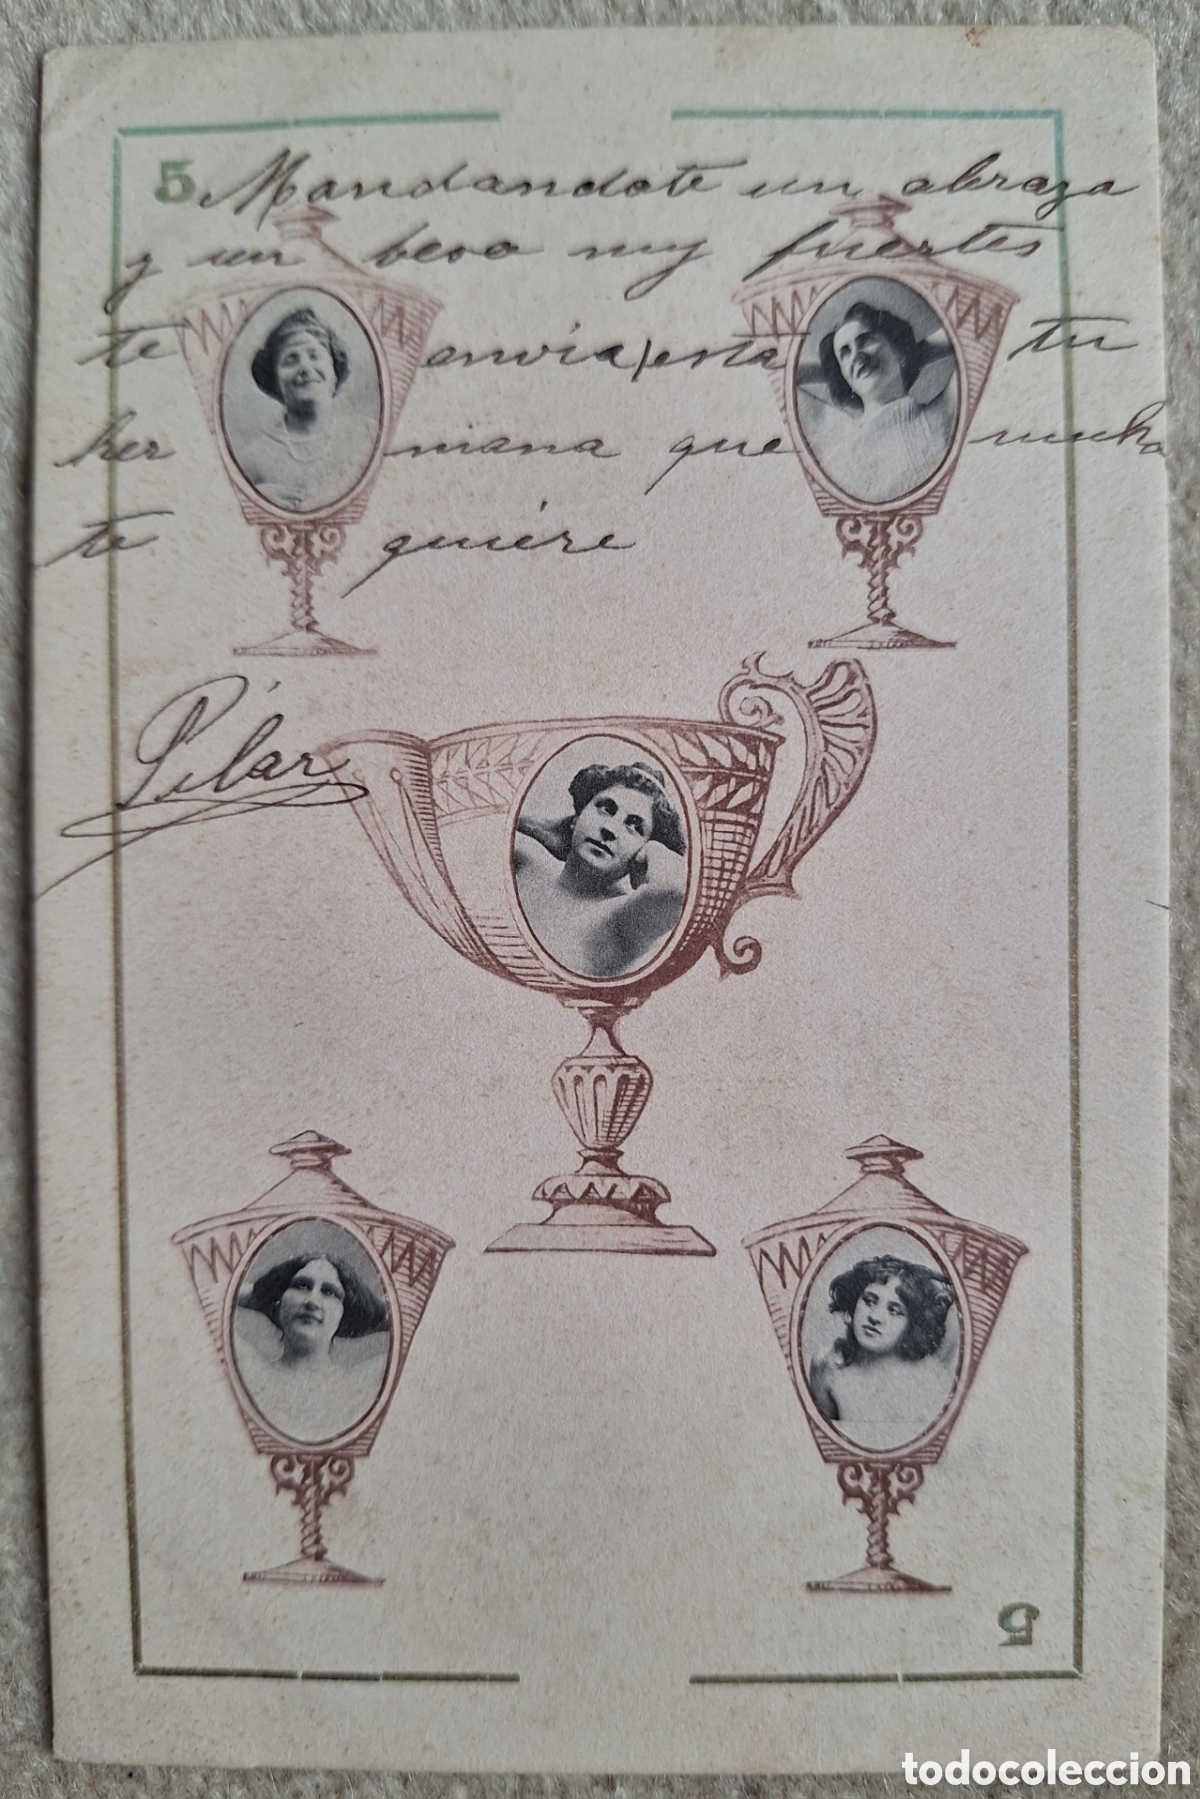 5 Mandandote un abrazo
y un beso muy fuertes
te envia esta tu
her mana que mucho
te quiére
Pilar
5
todocoleccion